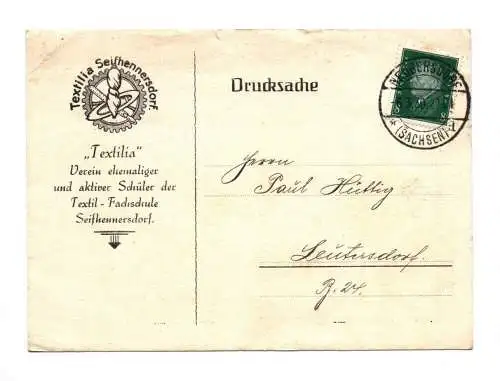 Textilia Seifhennersdorf
„Textilia"
Verein ehemaliger
und aktiver Schüler der
Textil-Fachschule
Seifhennersdorf.
Drucksache
(SACHSEN)
Herrn
Paul Hüttig
Leutersdorf.
B. 24.